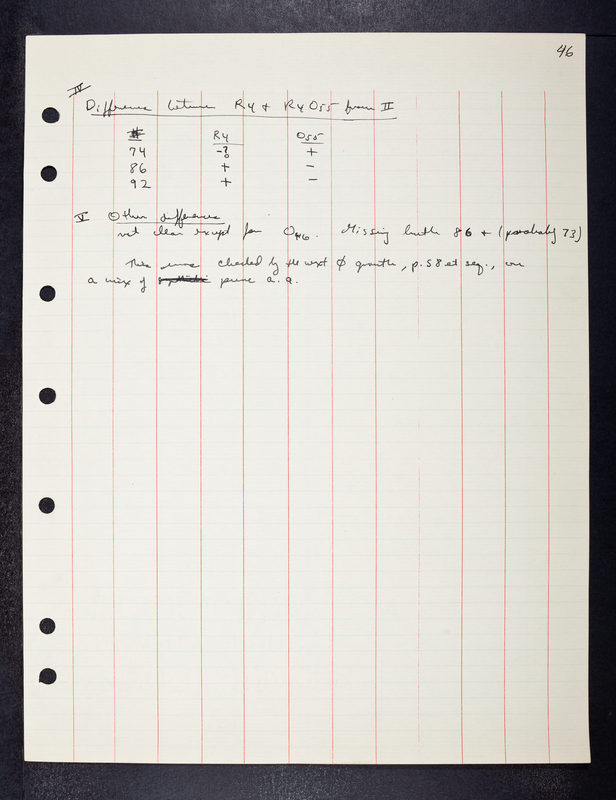 46
IV
Difference between R4 + R4 O55 from II
# R4 O55
74 -? +
86 + -
92 + -
V Other differences
not clear except for O H6. Missing both 86 + (probably 73)
This checked by the next φ growth, p. 58 et seq.,
a mix of synthetic pure a.a.